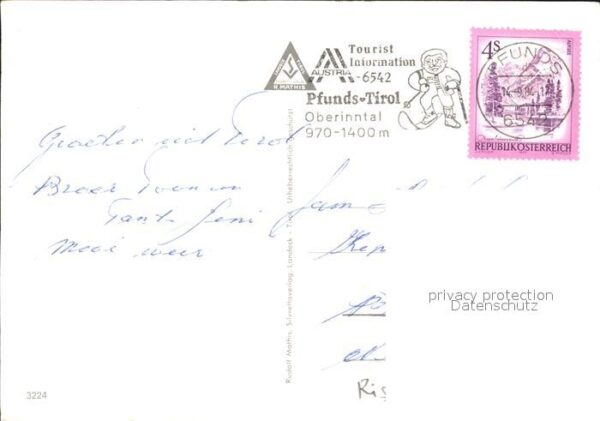 Tourist
Information
AUSTRIA -6542
R. MATHIS
Pfunds-Tirol
Oberinntal
970-1400 m
4S
PFUNDS
6542
REPUBLIK ÖSTERREICH
Groeten uit Tirol
Broer Toon en
Tant Jeni
Mooi weer
Fam
privacy protection
Datenschutz
Rudolf Mathis, Silvrettaverlag, Landeck - Tirol Urheberrechtlich geschützt
3224